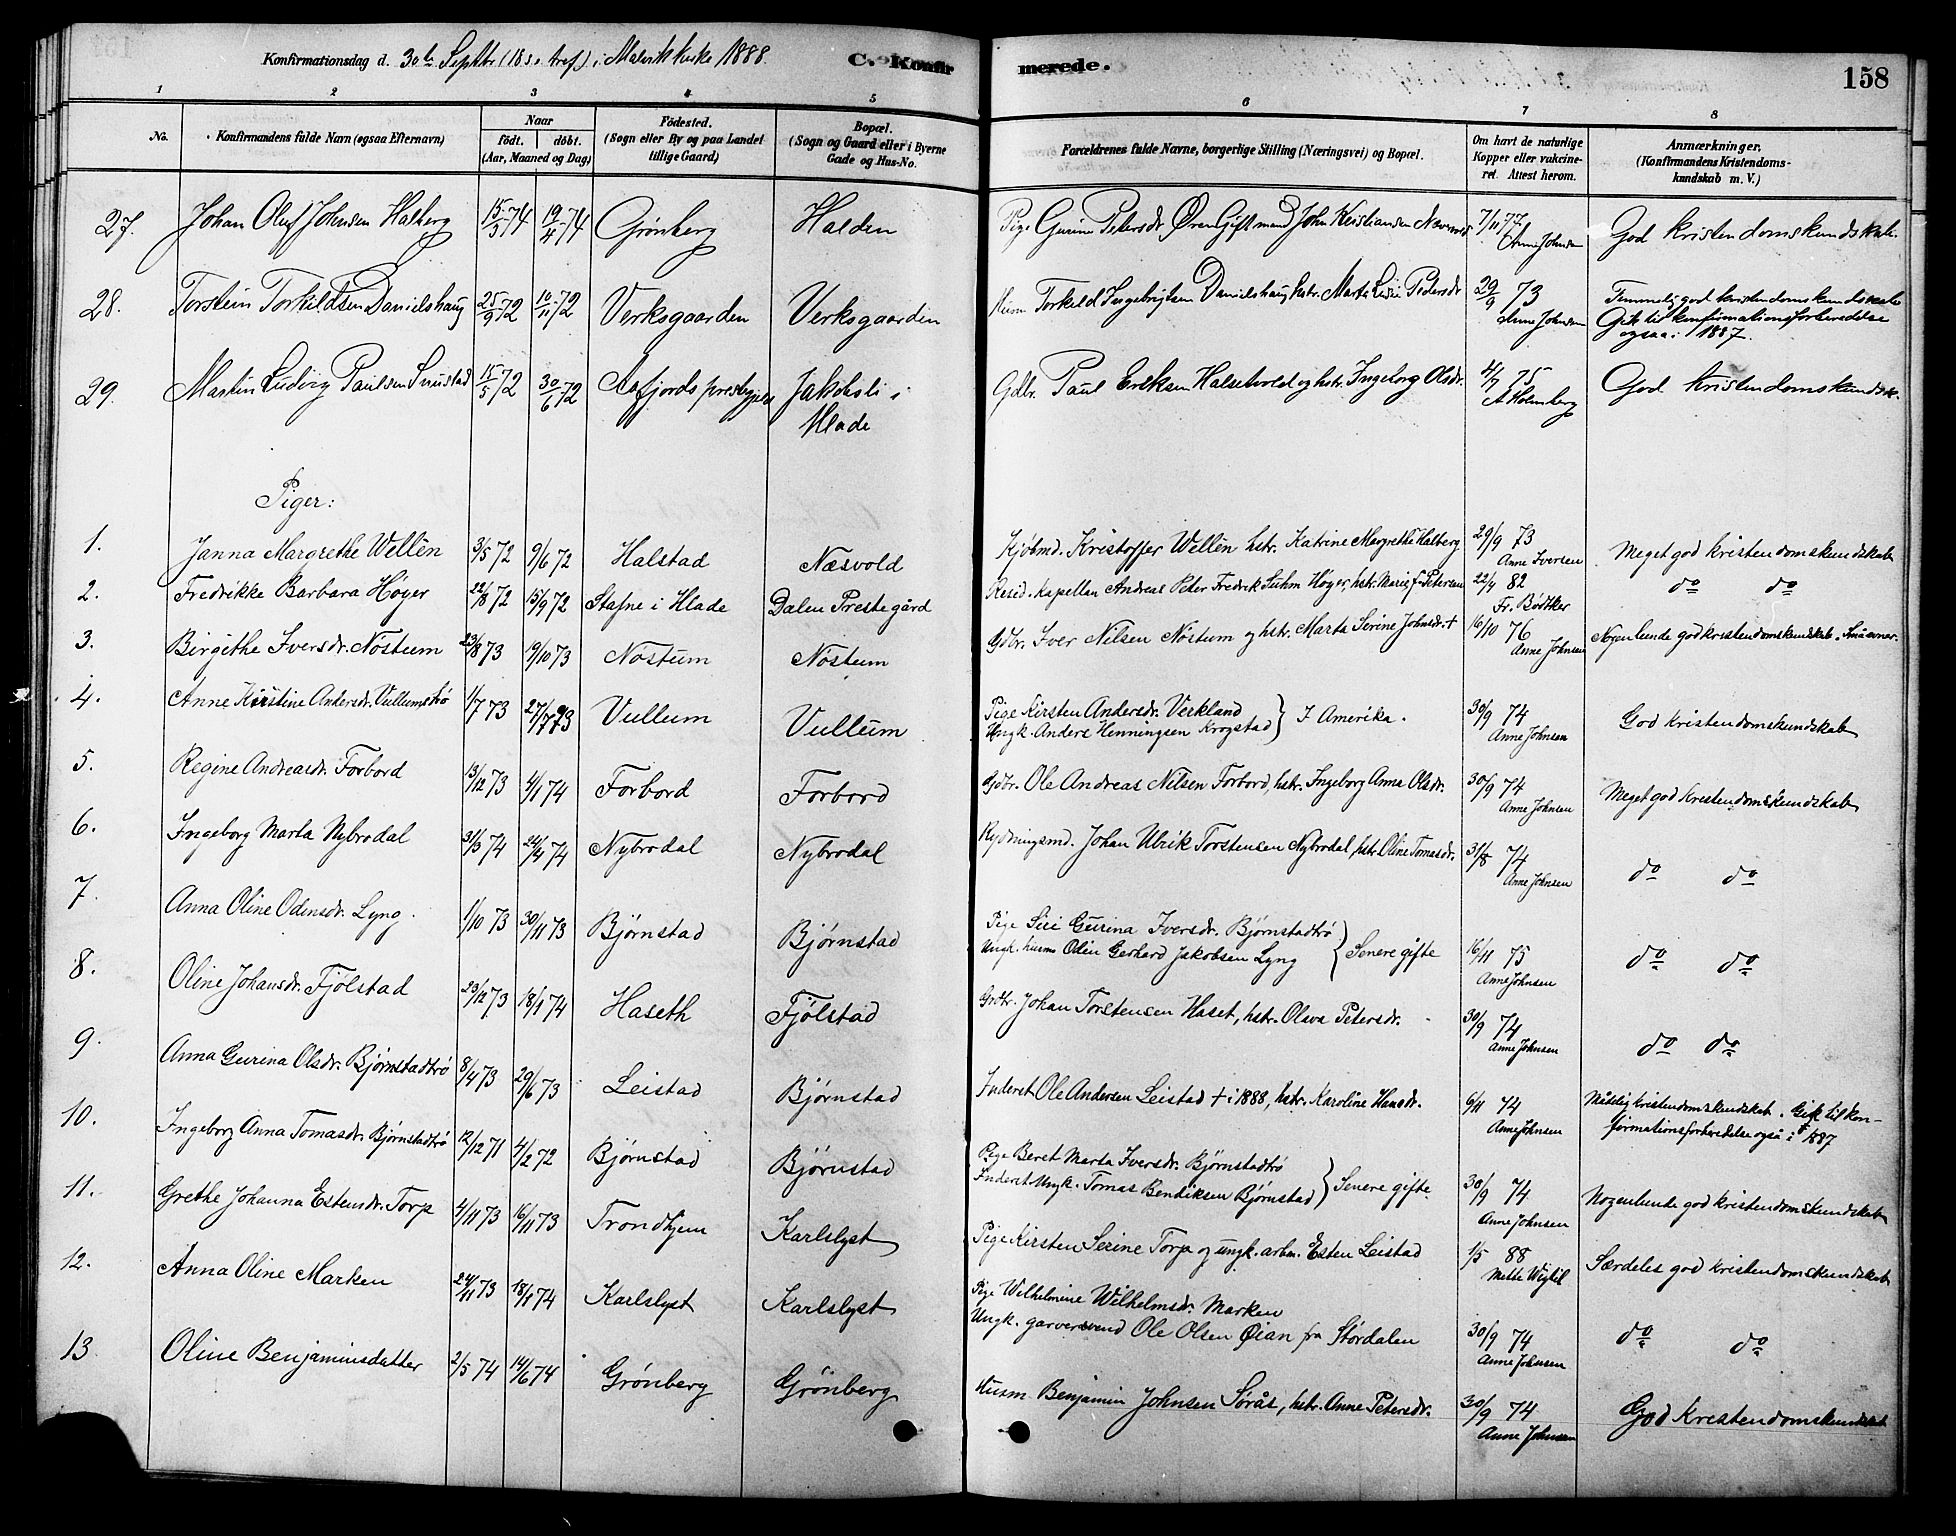 Konfirmationsdag d. 30te Septbr (18 s. e. tref.) i Malvik kirke 1888. C. Konfirmerede. 158
1 2 3 4 5 6 7 8
No. Konfirmandens fulde Navn (ogsaa Efternavn) Naar födt. döbt. (Aar, Maaned og Dag) Födested. (Sogn eller By og paa Landet tillige Gaard) Bopæl. (Sogn og Gaard eller i Byerne Gade og Hus-No. Forældrenes fulde Navne, borgerlige Stilling (Næringsvei) og Bopæl. Om havt de naturlige Kopper eller vakcineret. Attest herom. Anmærkninger. (Konfirmandens Kristendomskundskab m. V.)
27. Johan Oluf Johnsen Halberg 15/3 74 19/4 74 Grønberg Halden Pige Gurine Petersdr. Øren Gift mand John Kristiansen 7/11 77 Anne Johnsen God kristendomskundskab.
28. Torstein Torkildsen Danielshaug 25/9 72 10/11 72 Verksgaarden Verksgaarden Husm Torkild Ingebrigtsen Danielshaug hstr. Marta Lisie Pedersdr 29/9 73 Anne Johnsen Temmelig god kristendomskundskab Gik til konfirmationsforberedelse ogsaa i 1887.
29. Martin Ludvig Paulsen Snustad 15/5 72 30/6 72 Aafjords prestegjeld Jakobsli i Hlade Gdbr. Paul Eriksen Halsetvold og hstr. Ingeborg Olsdr. 4/7 75 A Holmberg God kristendomskundsk.
Piger:
1. Janna Margrethe Wellén 3/5 72 9/6 72 Halstad Næsvold Kjøbmd. Kristoffer Wellén hstr. Katrine Margrethe Halberg 29/9 73 Anne Iversen Meget god kristendomskundskab
2. Fredrikke Barbara Høyer 22/8 72 15/9 72 Stafne i Hlade Dalen Prestegård Resid. kapellan Andreas Peter Fredrik Suhm Høyer, hstr. Marie f. Petersen 22/4 82 Fr. Bödtker do do
3. Birgithe Iversdr. Nöstum 23/8 73 19/10 73 Nöstum Nöstum Gdbr. Iver Nilsen Nöstum og hstr. Marta Serine Johnsdr. † 16/10 76 Anne Johnsen Nogenlunde god kristendomskundskab.
4. Anne Kirstine Andersdr. Vullumstrø 1/7 73 27/7 73 Vullum Vullum Pige Kirsten Andersdr. Verkland Ungk. Anders Henningsen Krogstad } I Amerika. 30/9 74 Anne Johnsen God kristendomskundskab
5. Regine Andreasdr. Forbord 13/12 73 4/1 74 Forbord Forbord Gdbr. Ole Andreas Nilsen Forbord, hstr. Ingeborg Anna Olsdr. 30/9 74 Anne Johnsen Meget god kristendomskundskab
6. Ingeborg Marta Nybrodal 31/3 74 24/4 74 Nybrodal Nybrodal Rydningsmd. Johan Ulrik Torstensen Nybrodal, hstr. Oline Tomasdr. 31/8 74 Anne Johnsen do do
7. Anna Oline Odensdr. Lyng. 1/10 73 30/11 73 Bjørnstad Bjørnstad Pige Siri Gurina Iversdr. Bjørnstadtrø Ungk. husm Odin Gerhard Jakobsen Lyng } Senere gifte 16/11 75 Anne Johnsen do do
8. Oline Johansdr. Fjölstad 23/12 73 18/1 74 Haseth Fjölstad Gdbr. Johan Torstensen Haset, hstr. Olava Petersdr. 30/9 74 Anne Johnsen do do
9. Anna Gurina Olsdr. Bjørnstadtrø 8/4 73 29/6 73 Leistad Bjørnstad Inderst Ole Andersen Leistad † i 1888, hstr. Karoline Hansdr. 6/11 74 Anne Johnsen Måtelig kristendomskundskab. Gik til konformationsforberedelse også i 1887
10. Ingeborg Anna Tomasdr. Bjørnstadtrø 12/12 71 4/2 72 Bjørnstad Bjørnstad Pige Beret Marta Iversdr. Bjørnstadtrø Inderst Ungk. Tomas Bendiksen Bjørnstad } Senere gifte 30/9 74 Anne Johnsen Nogenlunde god kristendomskundskab
11. Grethe Johanna Estensdr. Torp 4/11 73 16/11 73 Trondhjem Karlslyst Pige Kirsten Serine Torp og ungk. arbm. Esten Leistad 1/5 88 Mette Wigtil Særdeles god kristendomskundskab
12. Anna Oline Marken 24/11 73 18/1 74 Karlslyst Karlslyst Pige Wilhelmine Wilhelmsdr. Marken Ungk. garversvend Ole Olsen Øian fra Størdalen 30/9 74 Anne Johnsen do do
13. Oline Benjaminsdatter 2/5 74 14/6 74 Grönberg Grönberg Husm. Benjamin Johnsen Sørås, hstr. Anne Petersdr. 30/9 74 Anne Johnsen God Kristendomskundskab